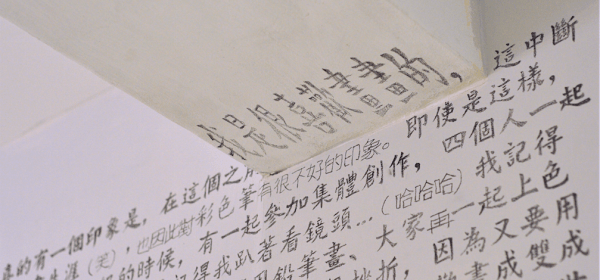 我是很喜歡畫畫的，這中斷
的有一個印象是，在這個之
生涯（笑），也因此對彩色筆有很不好的印象。即使是這樣，
的時候，有一起參加集體創作，四個人一起
得我趴著看鏡頭...（哈哈哈）我記得
用鉛筆畫、大家再一起上色
挫折，因為又要用
畫成雙成